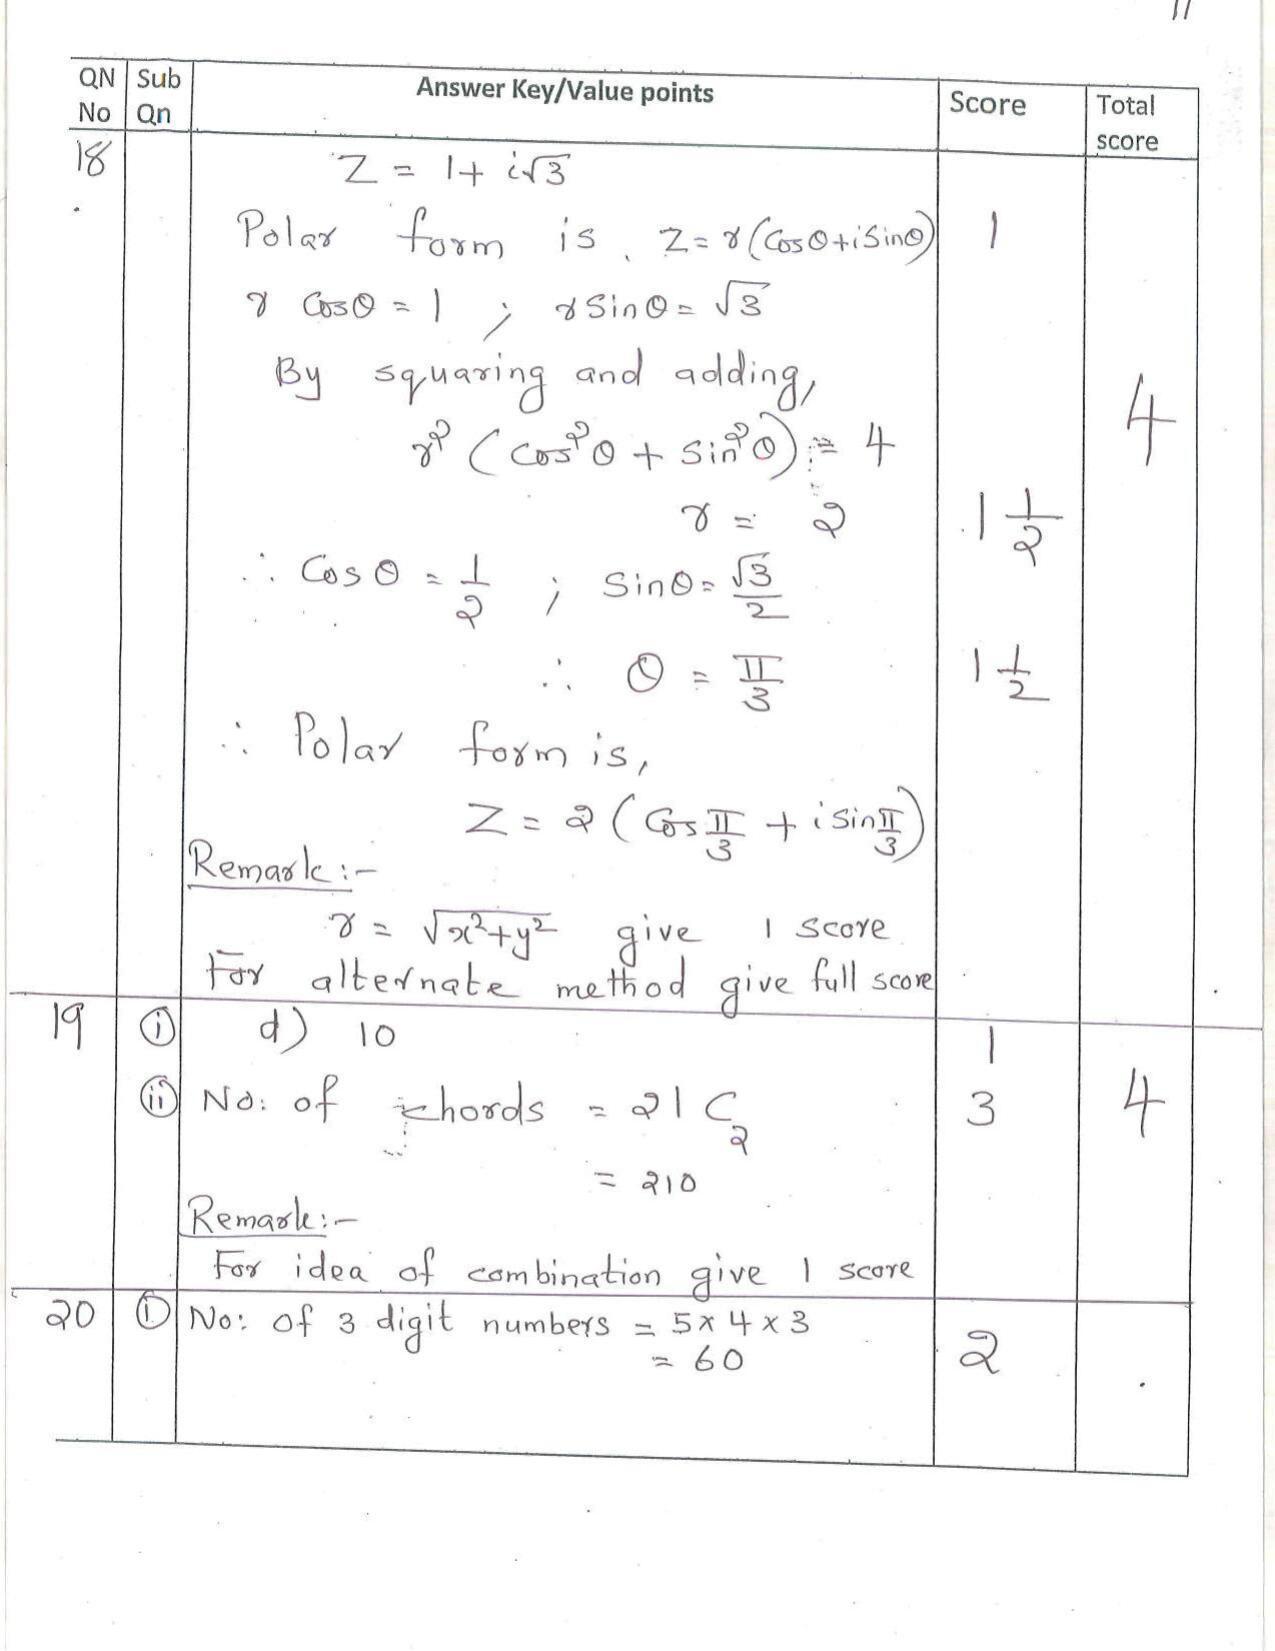 11
QN No Sub Qn Answer Key/Value points Score Total score
18 Z = 1 + i√3
Polar form is Z = r(Cosθ + iSinθ) 1
r Cosθ = 1 ; r Sinθ = √3
By squaring and adding,
r² (cos²θ + sin²θ) = 4 4
r = 2 1 1/2
∴ Cosθ = 1/2 ; Sinθ = √3/2
∴ θ = π/3 1 1/2
∴ Polar form is,
Z = 2 (Cos π/3 + i sin π/3)
Remark :-
r = √x²+y² give 1 score
For alternate method give full score
19 (i) d) 10 1
(ii) No: of chords = 21 C₂ 3 4
= 210
Remark :-
For idea of combination give 1 score
20 (i) No: of 3 digit numbers = 5 x 4 x 3
= 60 2